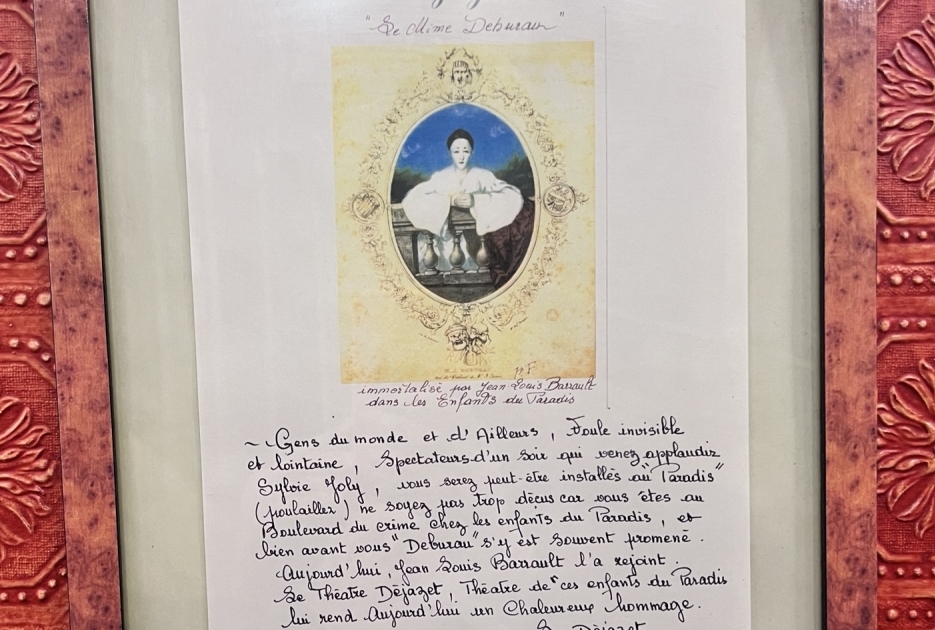 "Le Mime Deburau"
immortalisé par Jean-Louis Barrault
dans les Enfants du Paradis
~ Gens du monde et d'Ailleurs, Foule invisible
et lointaine, Spectateurs d'un soir qui venez applaudir
Sylvie Joly, vous serez peut-être installés au "Paradis"
(poulailler) ne soyez pas trop déçus car vous êtes au
Boulevard du crime chez les enfants du Paradis, et
bien avant vous "Deburau" s'y est souvent promené.
Aujourd'hui, Jean Louis Barrault l'a rejoint.
Le Théâtre Déjazet, Théâtre de "ces enfants du Paradis
lui rend Aujourd'hui un Chaleureux hommage.
Déjazet